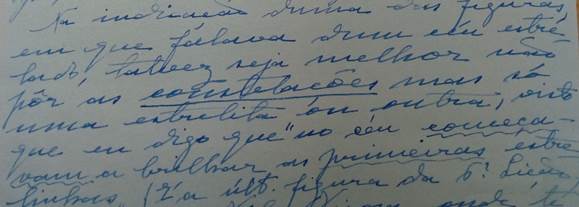 Na indicação duma das figuras,
em que falava dum céu estre
lado, talvez seja melhor não
pôr as constelações mas só
uma estrelita ou outra, visto
que eu digo que "no céu começa-
vam a brilhar as primeiras estre
linhas" (É a últ. figura da 6ª Lição
onde te